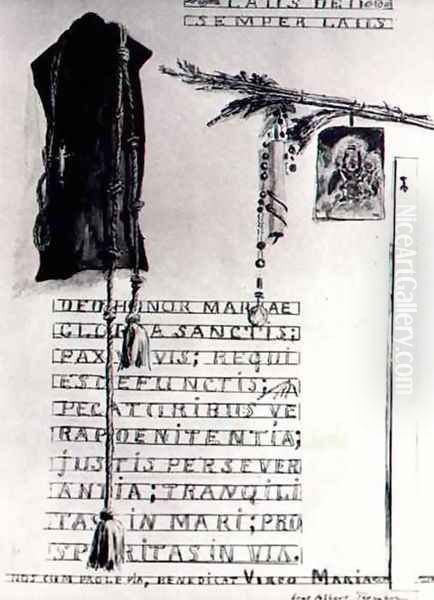 LAUS DEO
SEMPER LAUS
DEO HONOR MARIAE
GLORIA SANCTIS;
PAX VIS; REQUI
ES DEFUNCTIS;
PECATORIBUS VE
RA POENITENTIA;
JUSTIS PERSEVER
ANTIA; TRANQILI
TAS IN MARI; PRO
SPERITAS IN VIA.
NOS CUM PROLE PIA, BENEDICAT VIRGO MARIA
NiceArtGallery.com